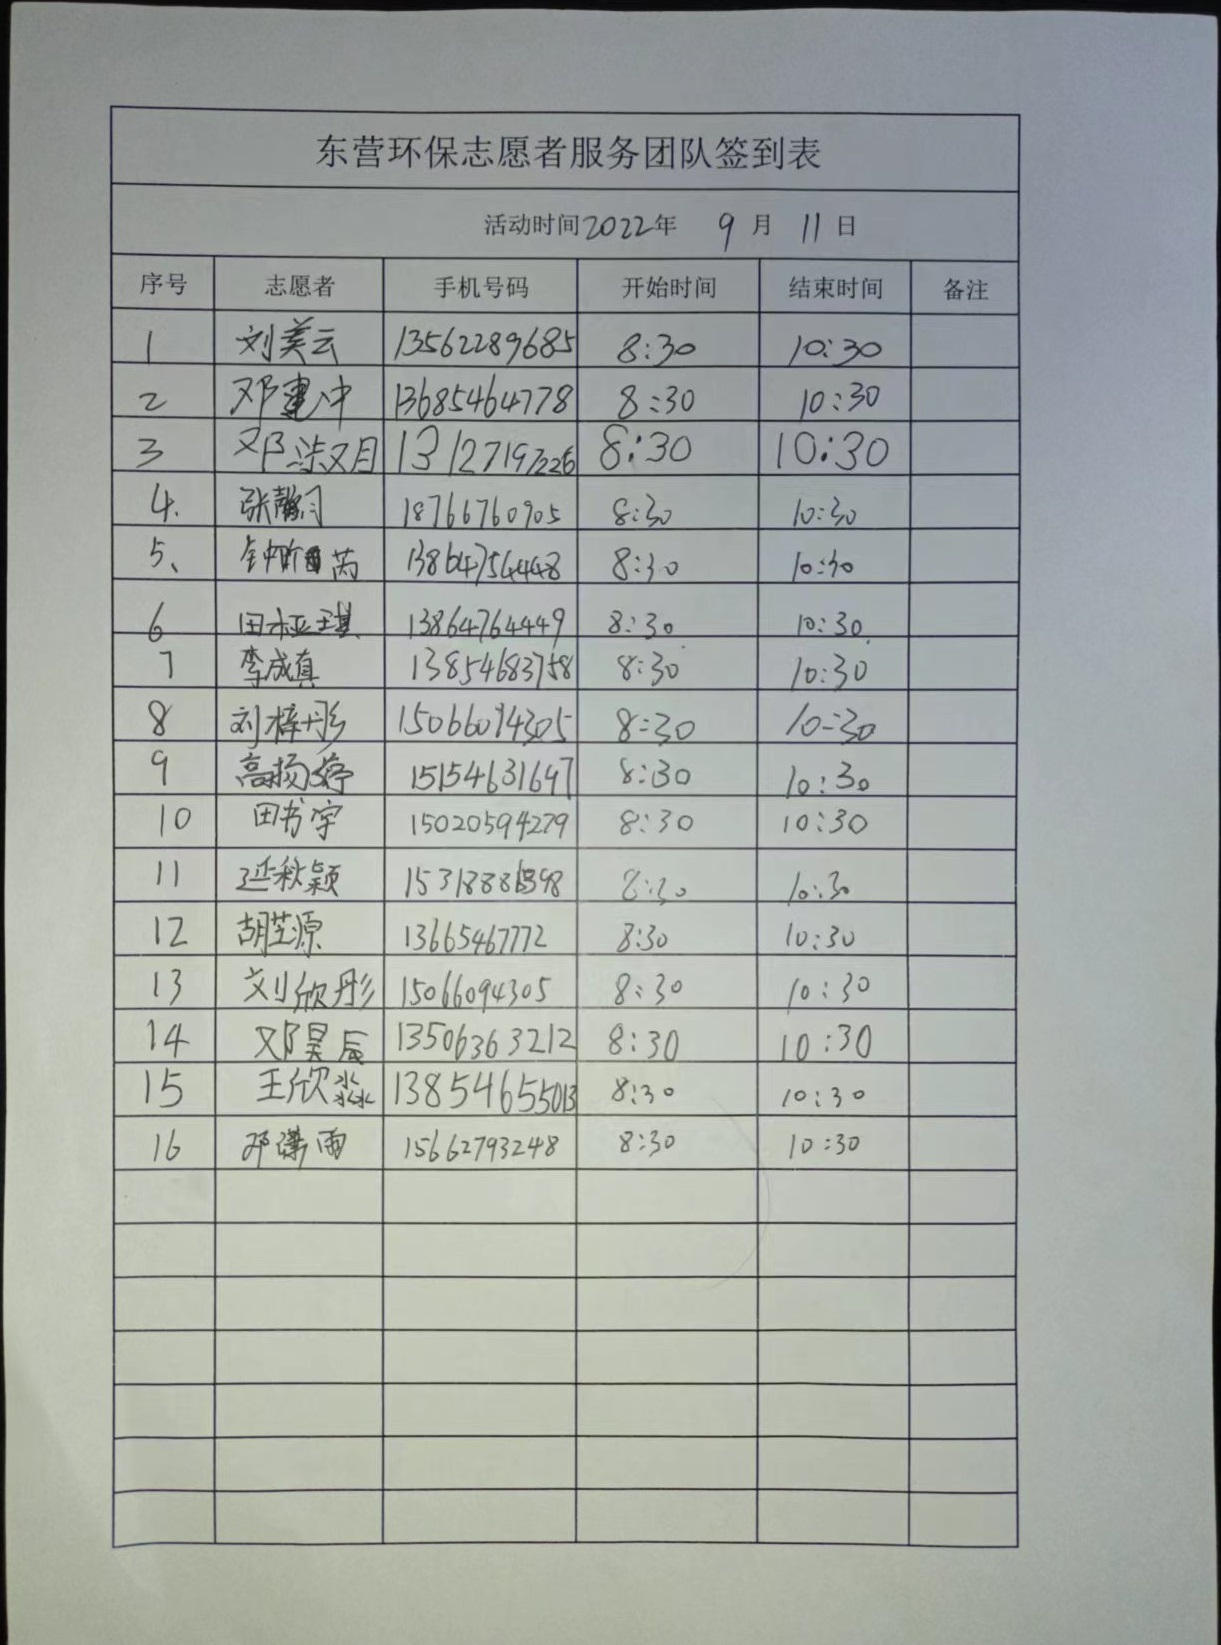 东营环保志愿者服务团队签到表
活动时间2022年 9月 11日
序号 志愿者 手机号码 开始时间 结束时间 备注
1 刘美云 13562289685 8:30 10:30
2 邓建冲 13685464778 8:30 10:30
3 邓 13127197226 8:30 10:30
4. 张 18766760905 8:30 10:30
5、 钟 芮 13864756448 8:30 10:30
6 田桠琪 13864764449 8:30 10:30
7 李成真 13854683758 8:30 10:30
8 刘梓彤 15066094305 8:30 10:30
9 高扬婷 15154631647 8:30 10:30
10 田书宇 15020594279 8:30 10:30
11 延秋颖 8:30 10:30
12 胡芷源 13665467772 8:30 10:30
13 刘欣彤 15066094305 8:30 10:30
14 邓昊辰 13506363212 8:30 10:30
15 王欣淼 13854655013 8:30 10:30
16 邓潇雨 15662793248 8:30 10:30